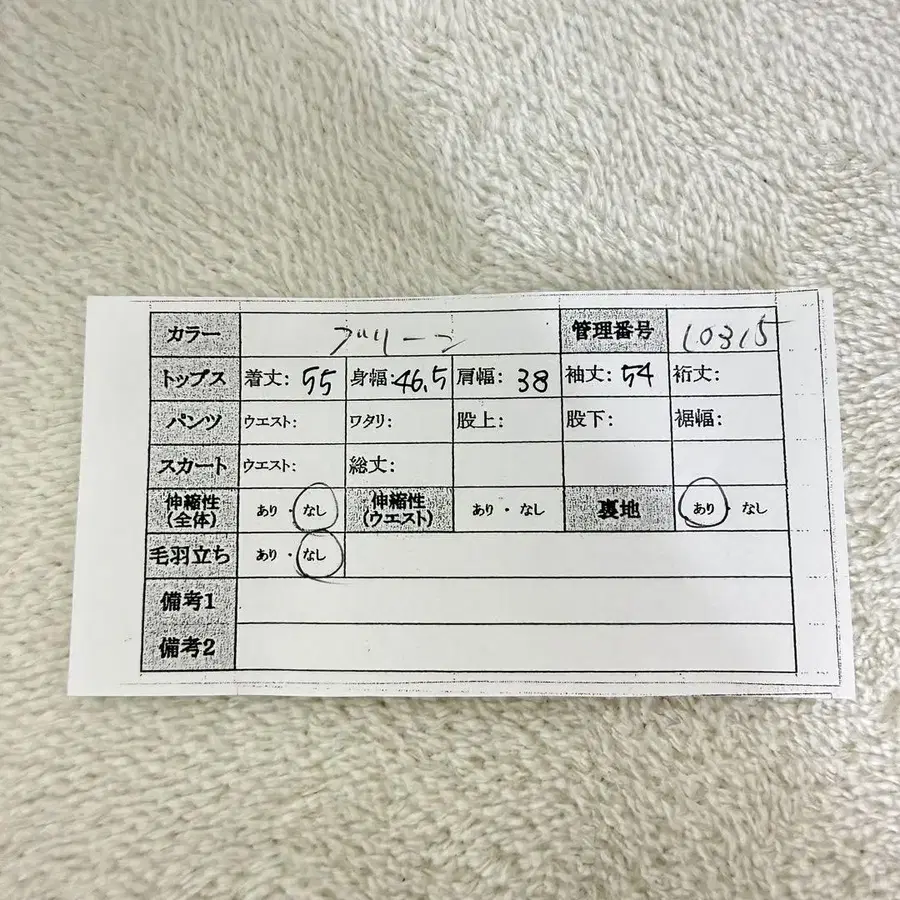 カラー グリーン 管理番号 10315
トップス 着丈: 55 身幅: 46.5 肩幅: 38 袖丈: 54 裄丈:
パンツ ウエスト: ワタリ: 股上: 股下: 裾幅:
スカート ウエスト: 総丈:
伸縮性(全体) あり・なし 伸縮性(ウエスト) あり・なし 裏地 あり・なし
毛羽立ち あり・なし
備考1
備考2